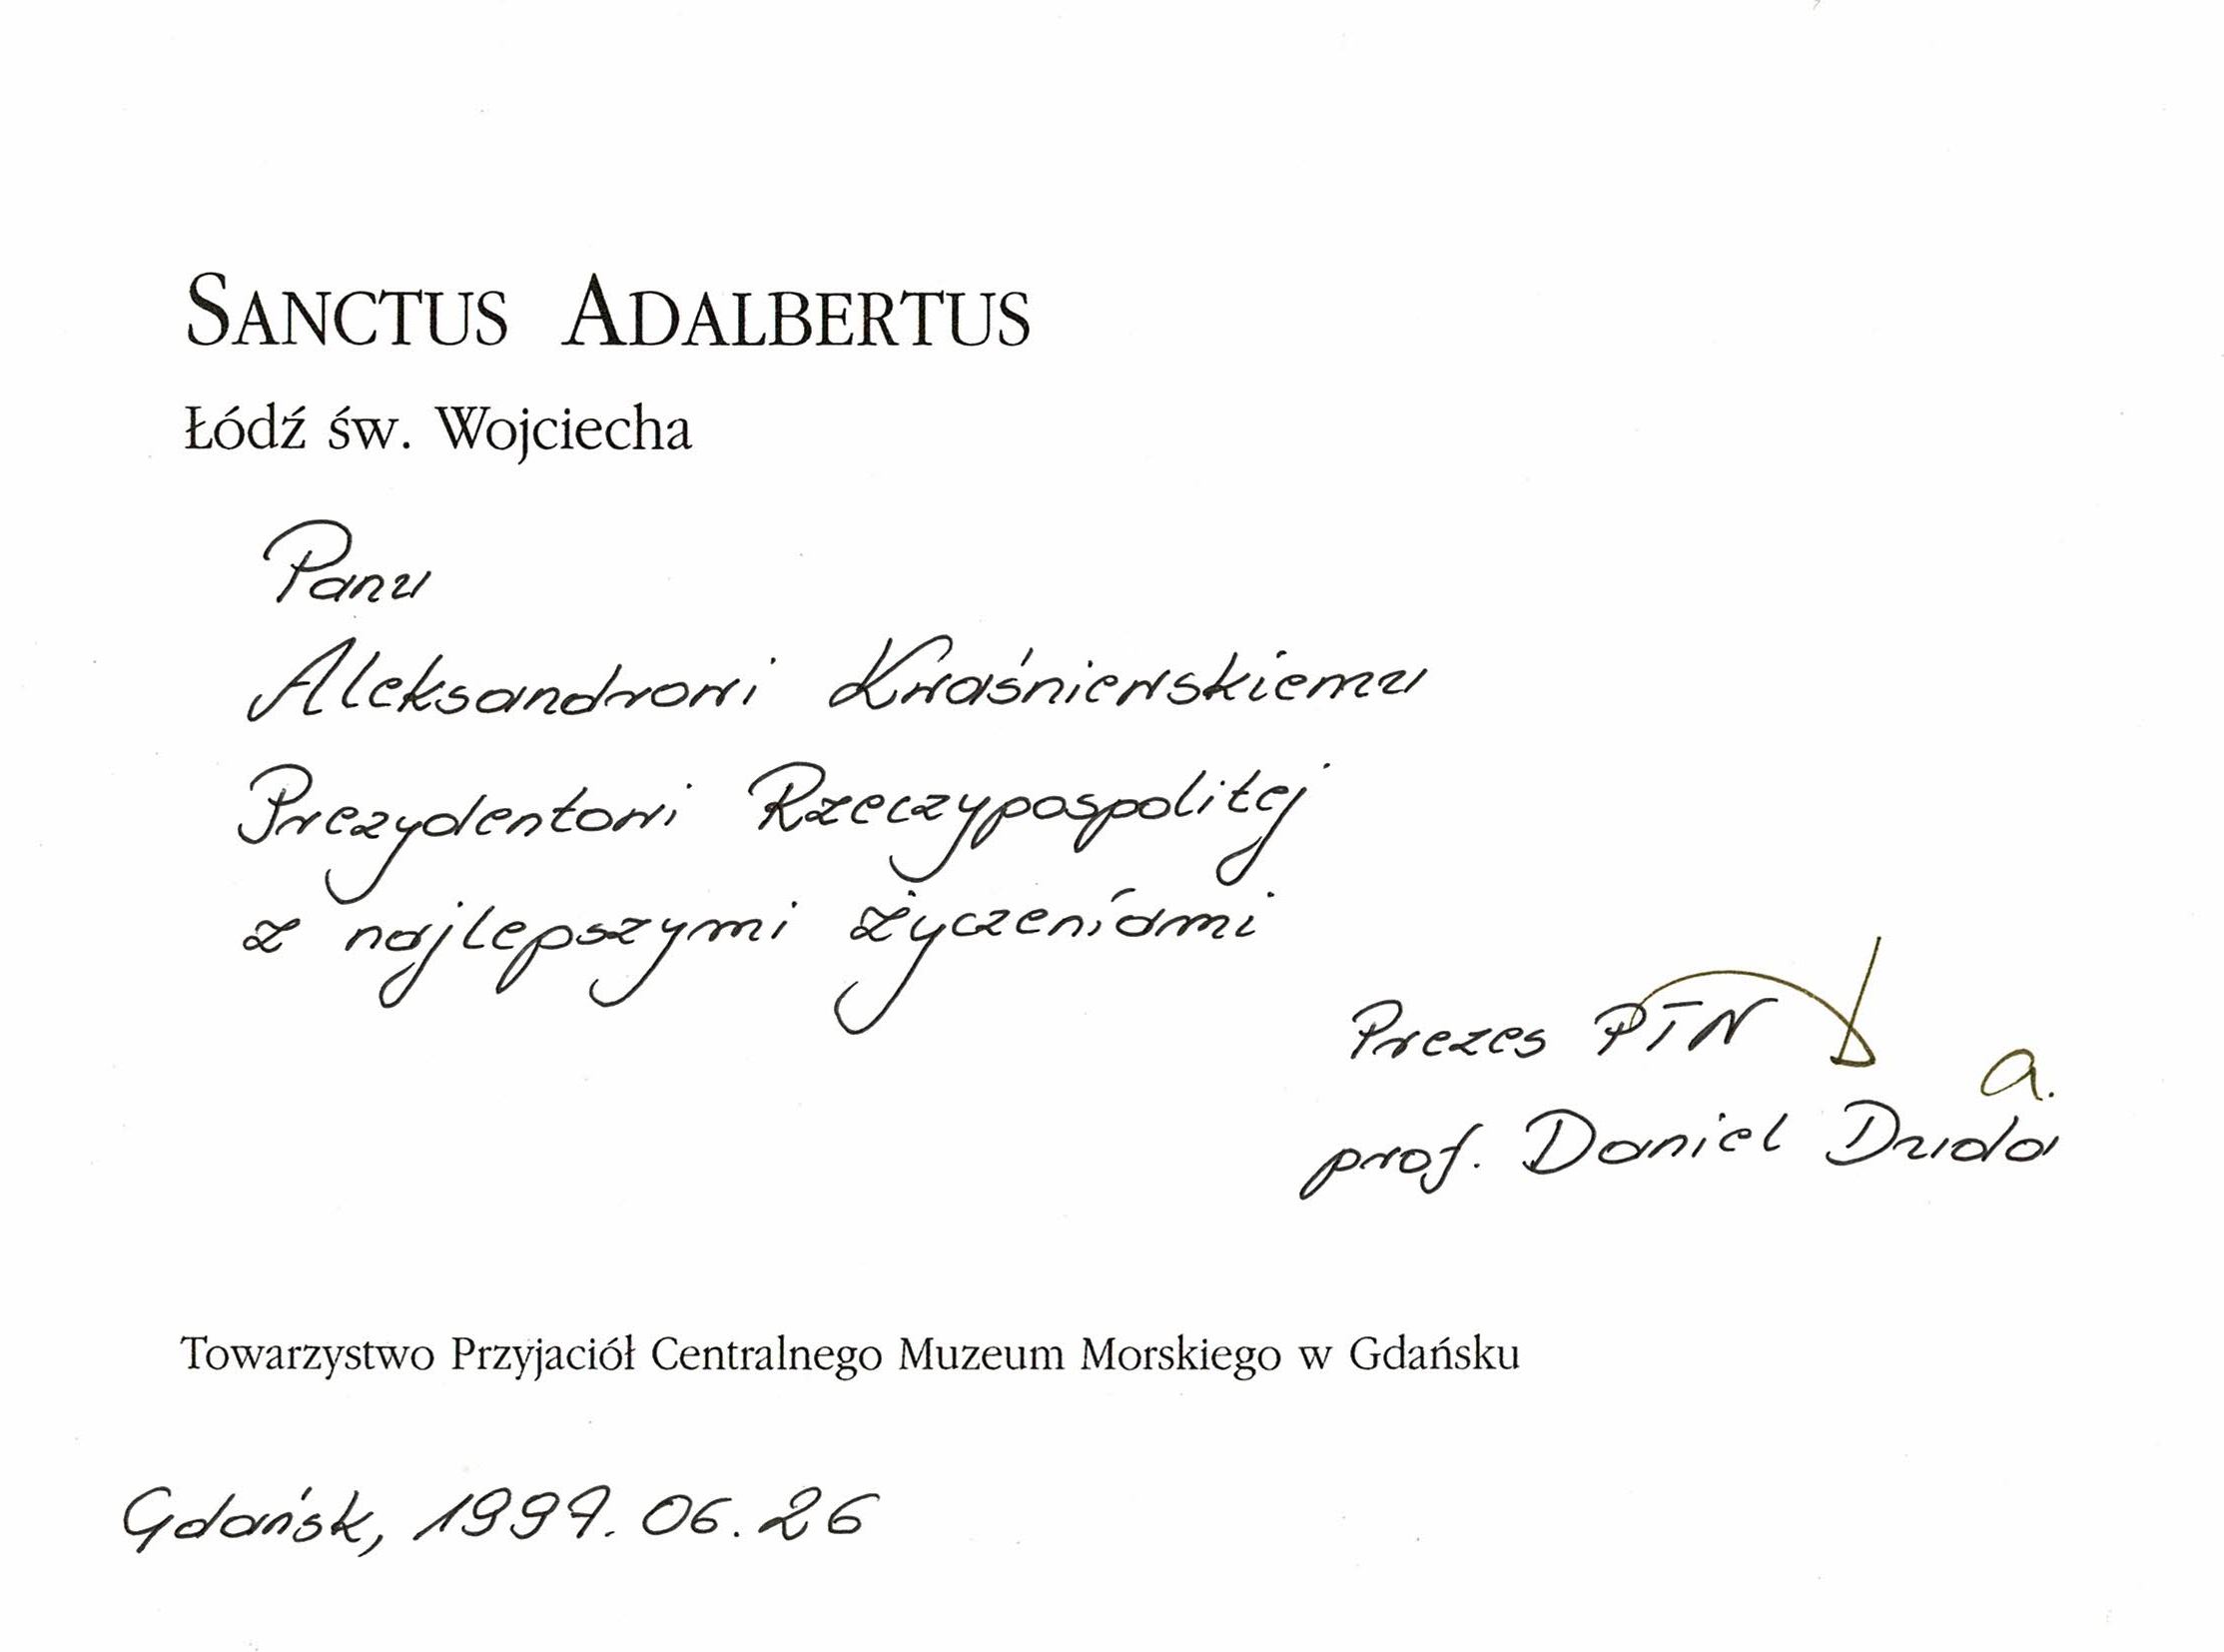 SANCTUS ADALBERTUS
Łódź św. Wojciecha
Panu
Aleksandrowi Kwaśniewskiemu
Prezydentowi Rzeczypospolitej
z najlepszymi życzeniami
Prezes PTN
prof. Daniel Duda
Towarzystwo Przyjaciół Centralnego Muzeum Morskiego w Gdańsku
Gdańsk, 1997.06.26